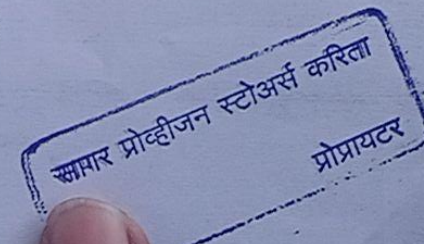 सागर प्रोव्हीजन स्टोअर्स करिता
प्रोप्रायटर